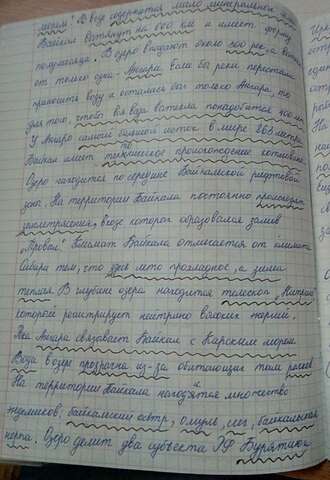 морем! В воде содержится мало минеральных
Байкал вытянут на 600 км и имеет форму
полумесяца. В озеро впадают около 300 рек, а вытек
от только одна - Ангара. Если бы реки перестали
приносить воду и осталась бы только Ангара, то
для того, чтобы вся вода вытекла понадобится 400 лет
У Ангары самый большой исток в мире 863 метра
Байкал имеет тектоническое происхождение котловины.
Озеро находится по середине Байкальской рифтовой
зоны. На территории Байкала постоянно происходят
землетрясения, в ходе которых образовался залив
„Провал". Климат Байкала отличается от климата
Сибири тем, что здесь лето прохладное, а зима
теплая. В глубине озера находится телескоп
который регистрирует нейтрино высоких энергий.
Река Ангара связывает Байкал с Карским морем
Вода в озере прозрачна из-за обитающих там рачков
На территории Байкала находятся множество
эндемиков: байкальский осётр, омуль, сиг, байкальская
нерпа. Озеро делит два субъекта РФ Бурятию